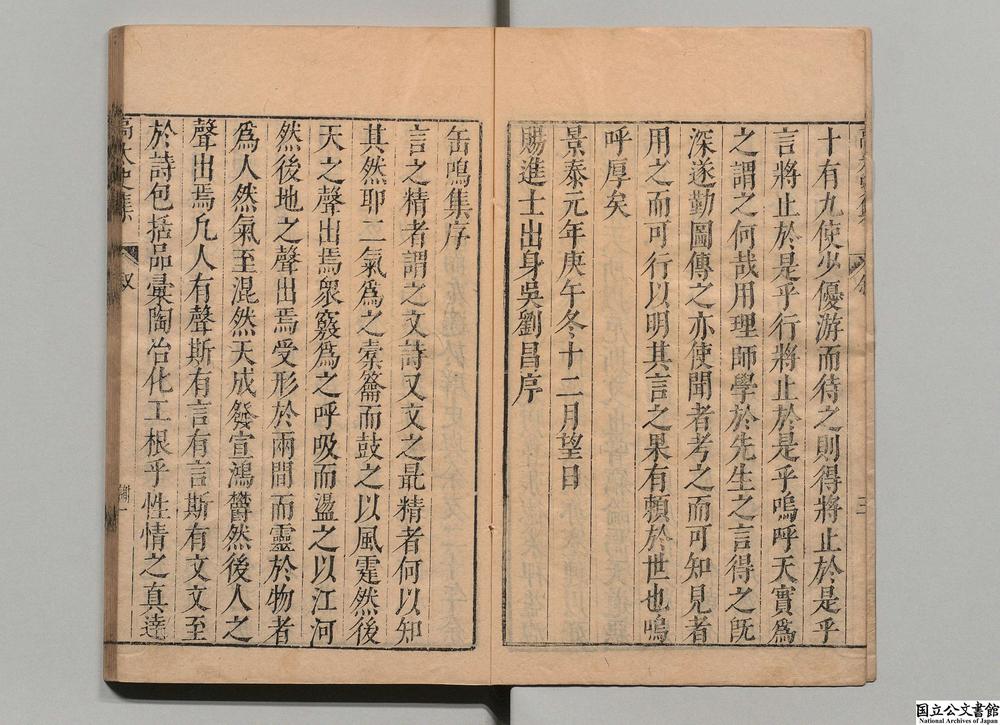 十有九使少優游而待之則得將止於是乎
言將止於是乎行將止於是乎嗚呼天實爲
之謂之何哉用理師學於先生之言得之旣
深遂勤圖傳之亦使聞者考之而可知見者
用之而可行以明其言之果有賴於世也嗚
呼厚矣
景泰元年庚午冬十二月望日
賜進士出身吳劉昌序
缶鳴集序
言之精者謂之文詩又文之最精者何以知
其然耶二氣爲之橐籥而鼓之以風霆然後
天之聲出焉衆竅爲之呼吸而盪之以江河
然後地之聲出焉受形於兩間而靈於物者
爲人然氣至混然天成發宣鴻鬱然後人之
聲出焉凡人有聲斯有言有言斯有文文至
於詩包括品彙陶冶化工根乎性情之真達
高太史集 叙 一
国立公文書館
National Archives of Japan